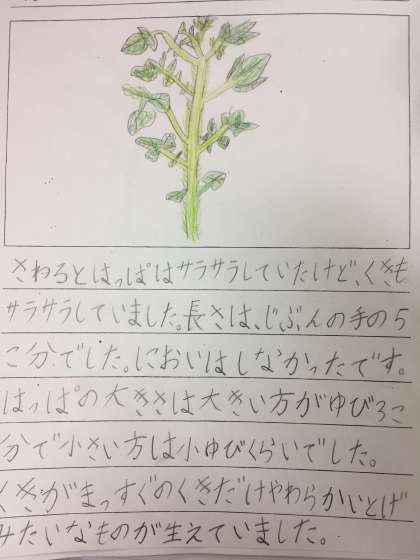 さわるとはっぱはサラサラしていたけど、くきも
サラサラしていました。長さは、じぶんの手の5
こ分でした。においはしなかったです。
はっぱの大きさは大きい方がゆび3こ
分で小さい方は小ゆびくらいでした。
くきがまっすぐのくきだけやわらかいとげ
みたいなものが生えていました。